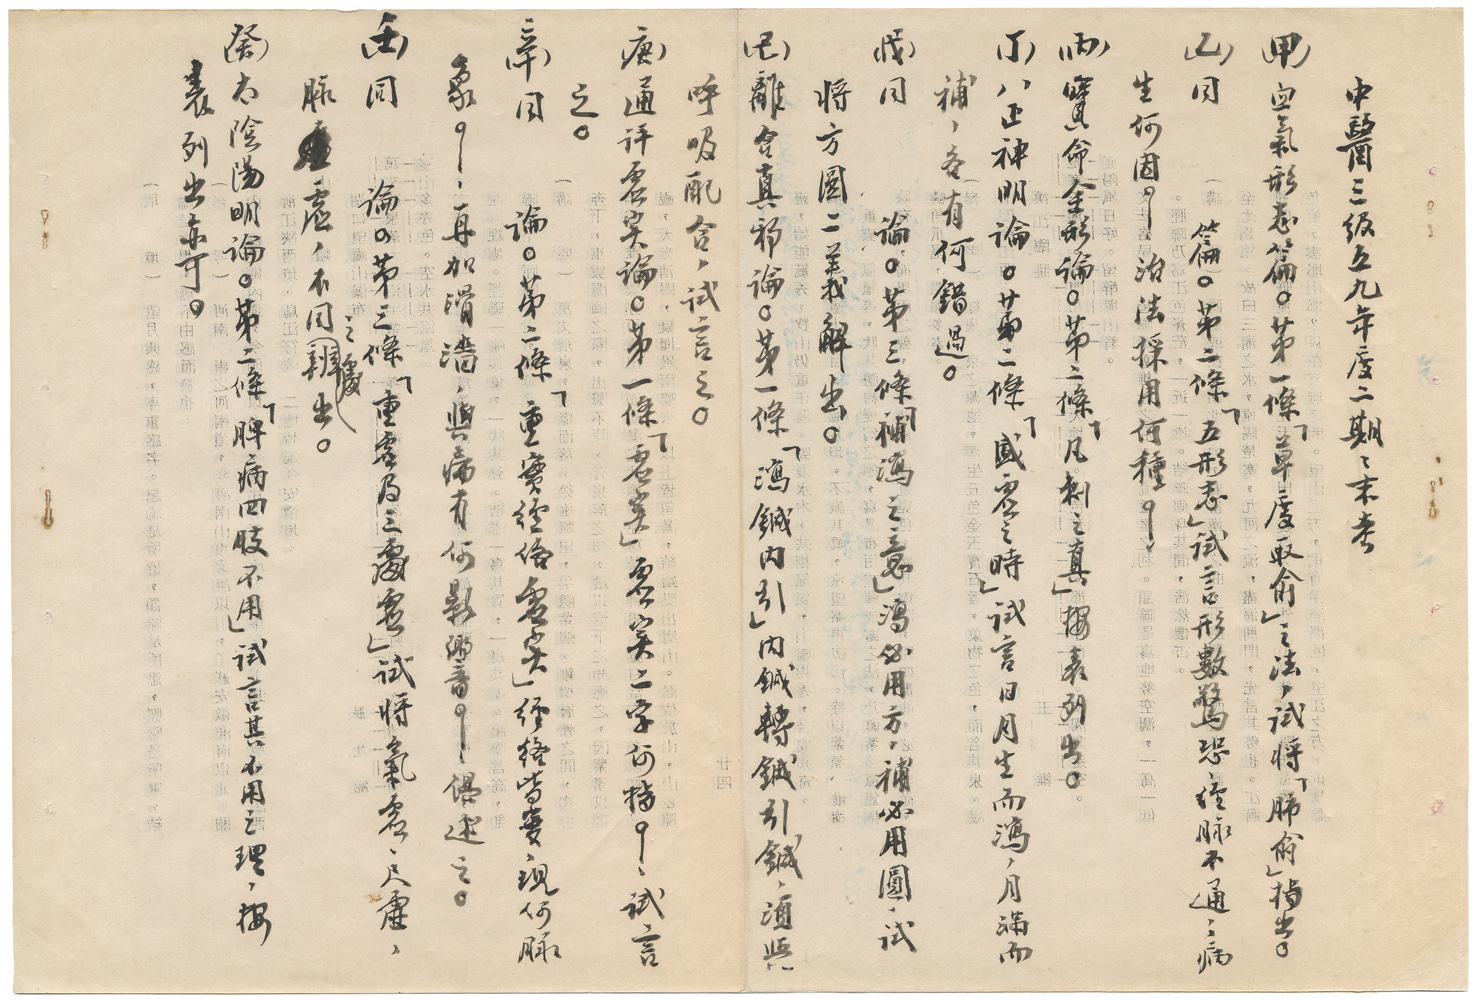 中醫三級五九年度二期、末考
(甲)血氣形志篇。第一條「草度取俞」之法，試將「肺俞」指出。
(乙)同　　篇。第二條「五形志」試言形數驚恐、經脉不通、病
生何因？治法採用何種？、
(丙)寶命全形論。第二條「凡刺之真」按表列出。
(丁)八正神明論。第二條「盛虛之時」試言日月生而瀉，月滿而
補，各有何錯過。
(戊)同　　論。第三條「補瀉之意」瀉必用方，補必用圓，試
将方圓二義解出。
(己)離合真邪論。第一條「瀉鍼內引」內鍼轉鍼引鍼，須與
呼吸配合，試言之。
(庚)通評虛实論。第一條「虛实」虛实二字何指？、試言
之。
(辛)同　　論。第二條「重實經絡虛实」經絡皆實、現何脉
象？、再加滑濇與病有何影響？、傋述之。
(壬)同　　論。第三條「重虛及三處虛」試將氣虛、尺虛、
脉虛，不同之處辨出。
(癸)太陰陽明論。第二條「脾病四肢不用」試言其不用之理，按
表列出亦可。